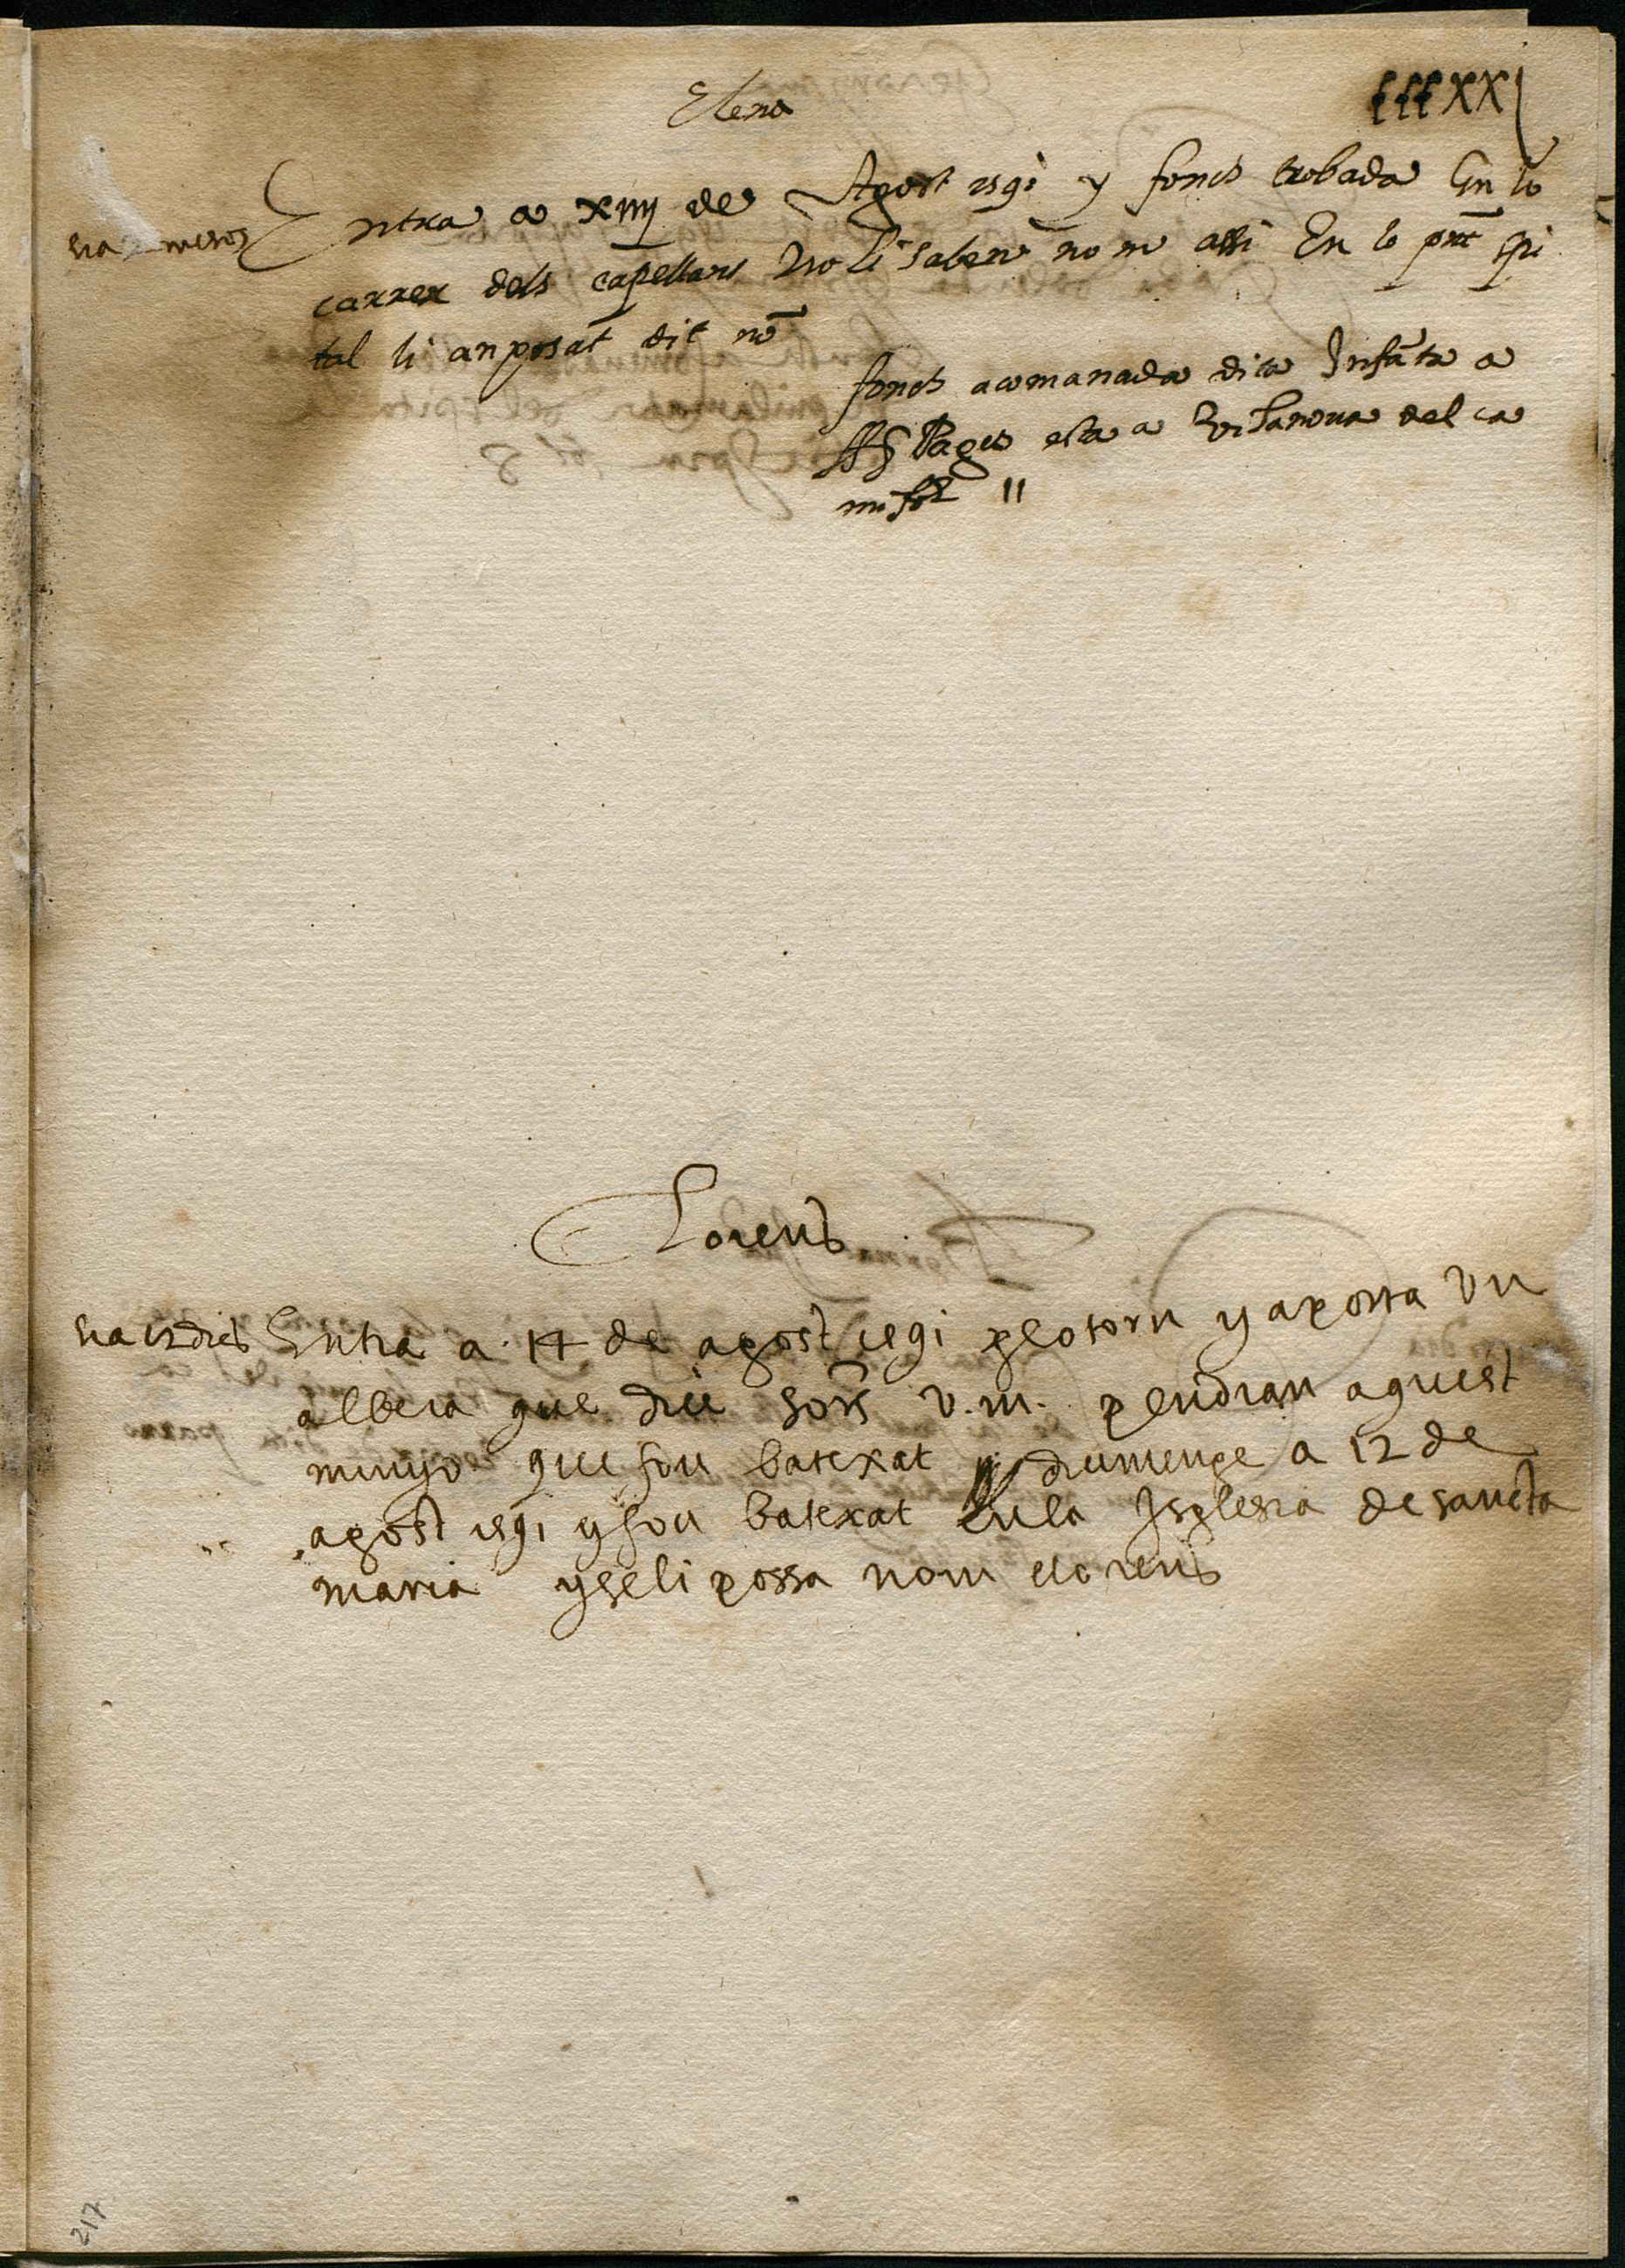 Elena
cccxxj
Entra a xiiij de Agost 1591 y fonch trobada En lo
carrer dels capellans No li saben nom assi En lo pnt spi
tal li an posat dit nō
fonch acomanada dita Infāta a
Pages esta a Vilanova del ca
mi fol 11
Lorens
Entra a 14 de agost 1591 y aporta vn
albera que diu sors v.m. pendran aquest
minyo que fou batexat diumenge a 12 de
agost 1591 y fou batexat en la Isglesia de sancta
maria y se li possa nom llorens
217